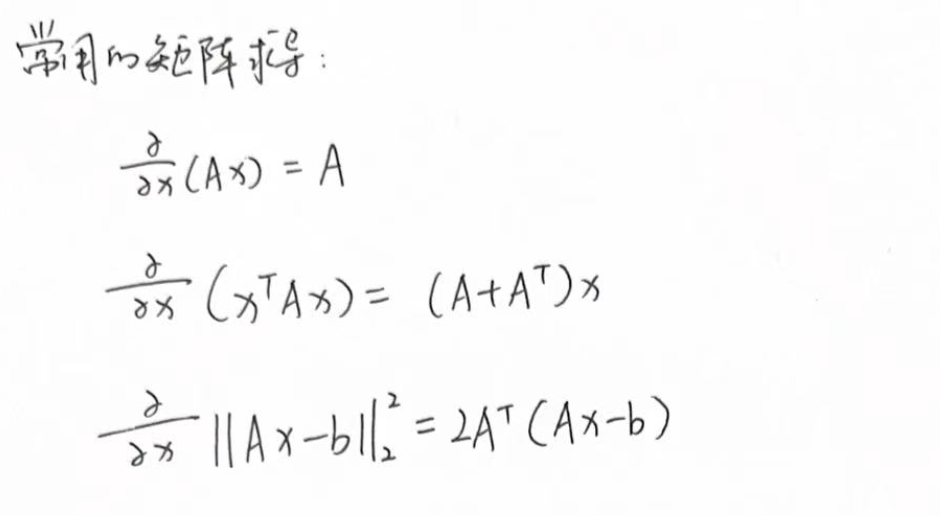 常用的矩阵求导：
∂/∂x (Ax) = A
∂/∂x (xᵀAx) = (A+Aᵀ)x
∂/∂x ||Ax-b||₂² = 2Aᵀ(Ax-b)